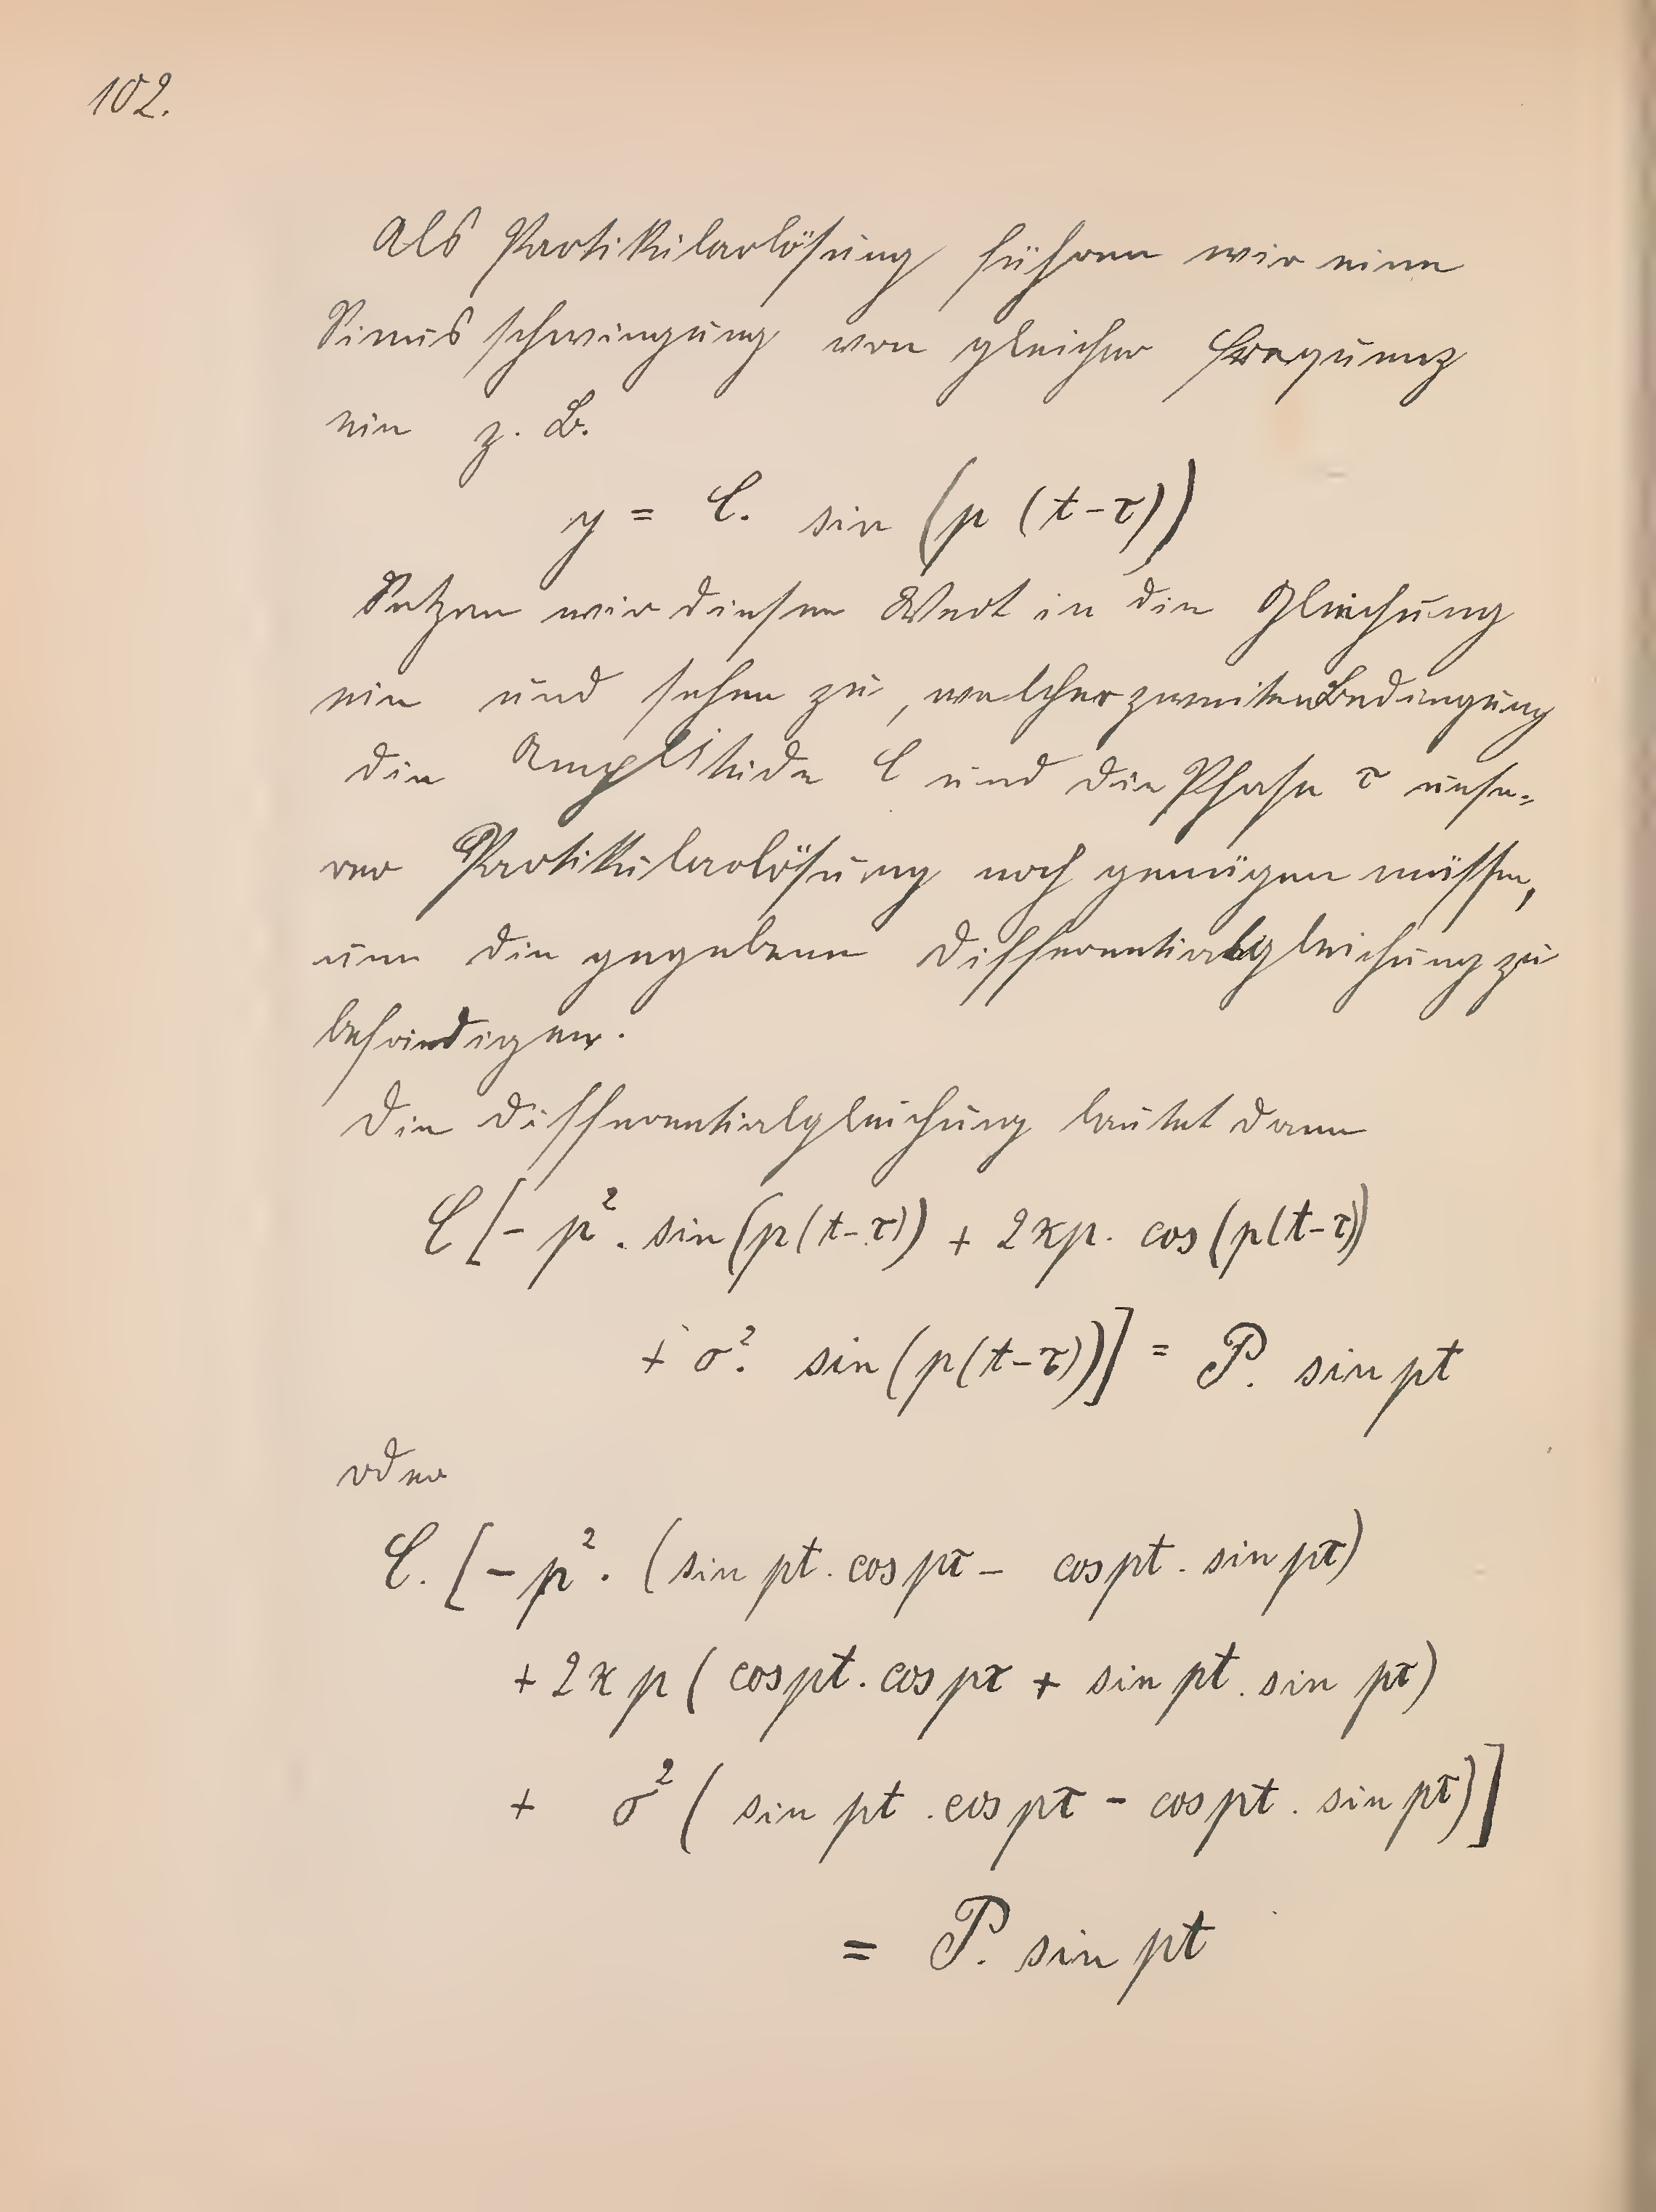 102.
Als Partikularlösung führen wir eine
Sinusschwingung von gleicher Frequenz
ein z. B.
y = C. sin (p (t-τ))
Setzen wir diesen Wert in die Gleichung
ein und sehen zu, welcher zweiten Bedingung
die Amplitude C und die Phase τ unse-
rer Partikularlösung noch genügen müssen,
um die gegebene Differentialgleichung zu
befriedigen.
Die Differentialgleichung lautet dann
C [- p². sin (p(t-τ)) + 2ϰp. cos (p(t-τ))
+ σ². sin (p(t-τ))] = P. sin pt
oder
C. [- p². (sin pt. cos pτ - cos pt. sin pτ)
+ 2ϰp ( cos pt. cos pτ + sin pt. sin pτ)
+ σ² ( sin pt. cos pτ - cos pt. sin pτ)]
= P. sin pt